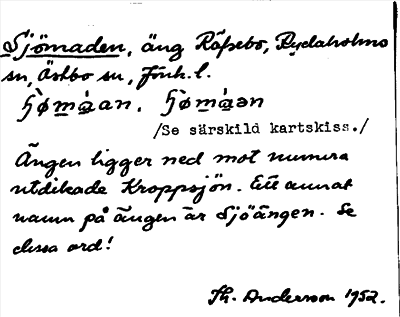 Sjömaden, äng Råsebo, Rydaholms
sn, Östbo hd, Jönk. l.
/Se särskild kartskiss./
Ängen ligger ned mot numera
utdikade Kroppsjön. Ett annat
namn på ängen är Sjöängen. Se
dessa ord!
Th. Andersson 1952.